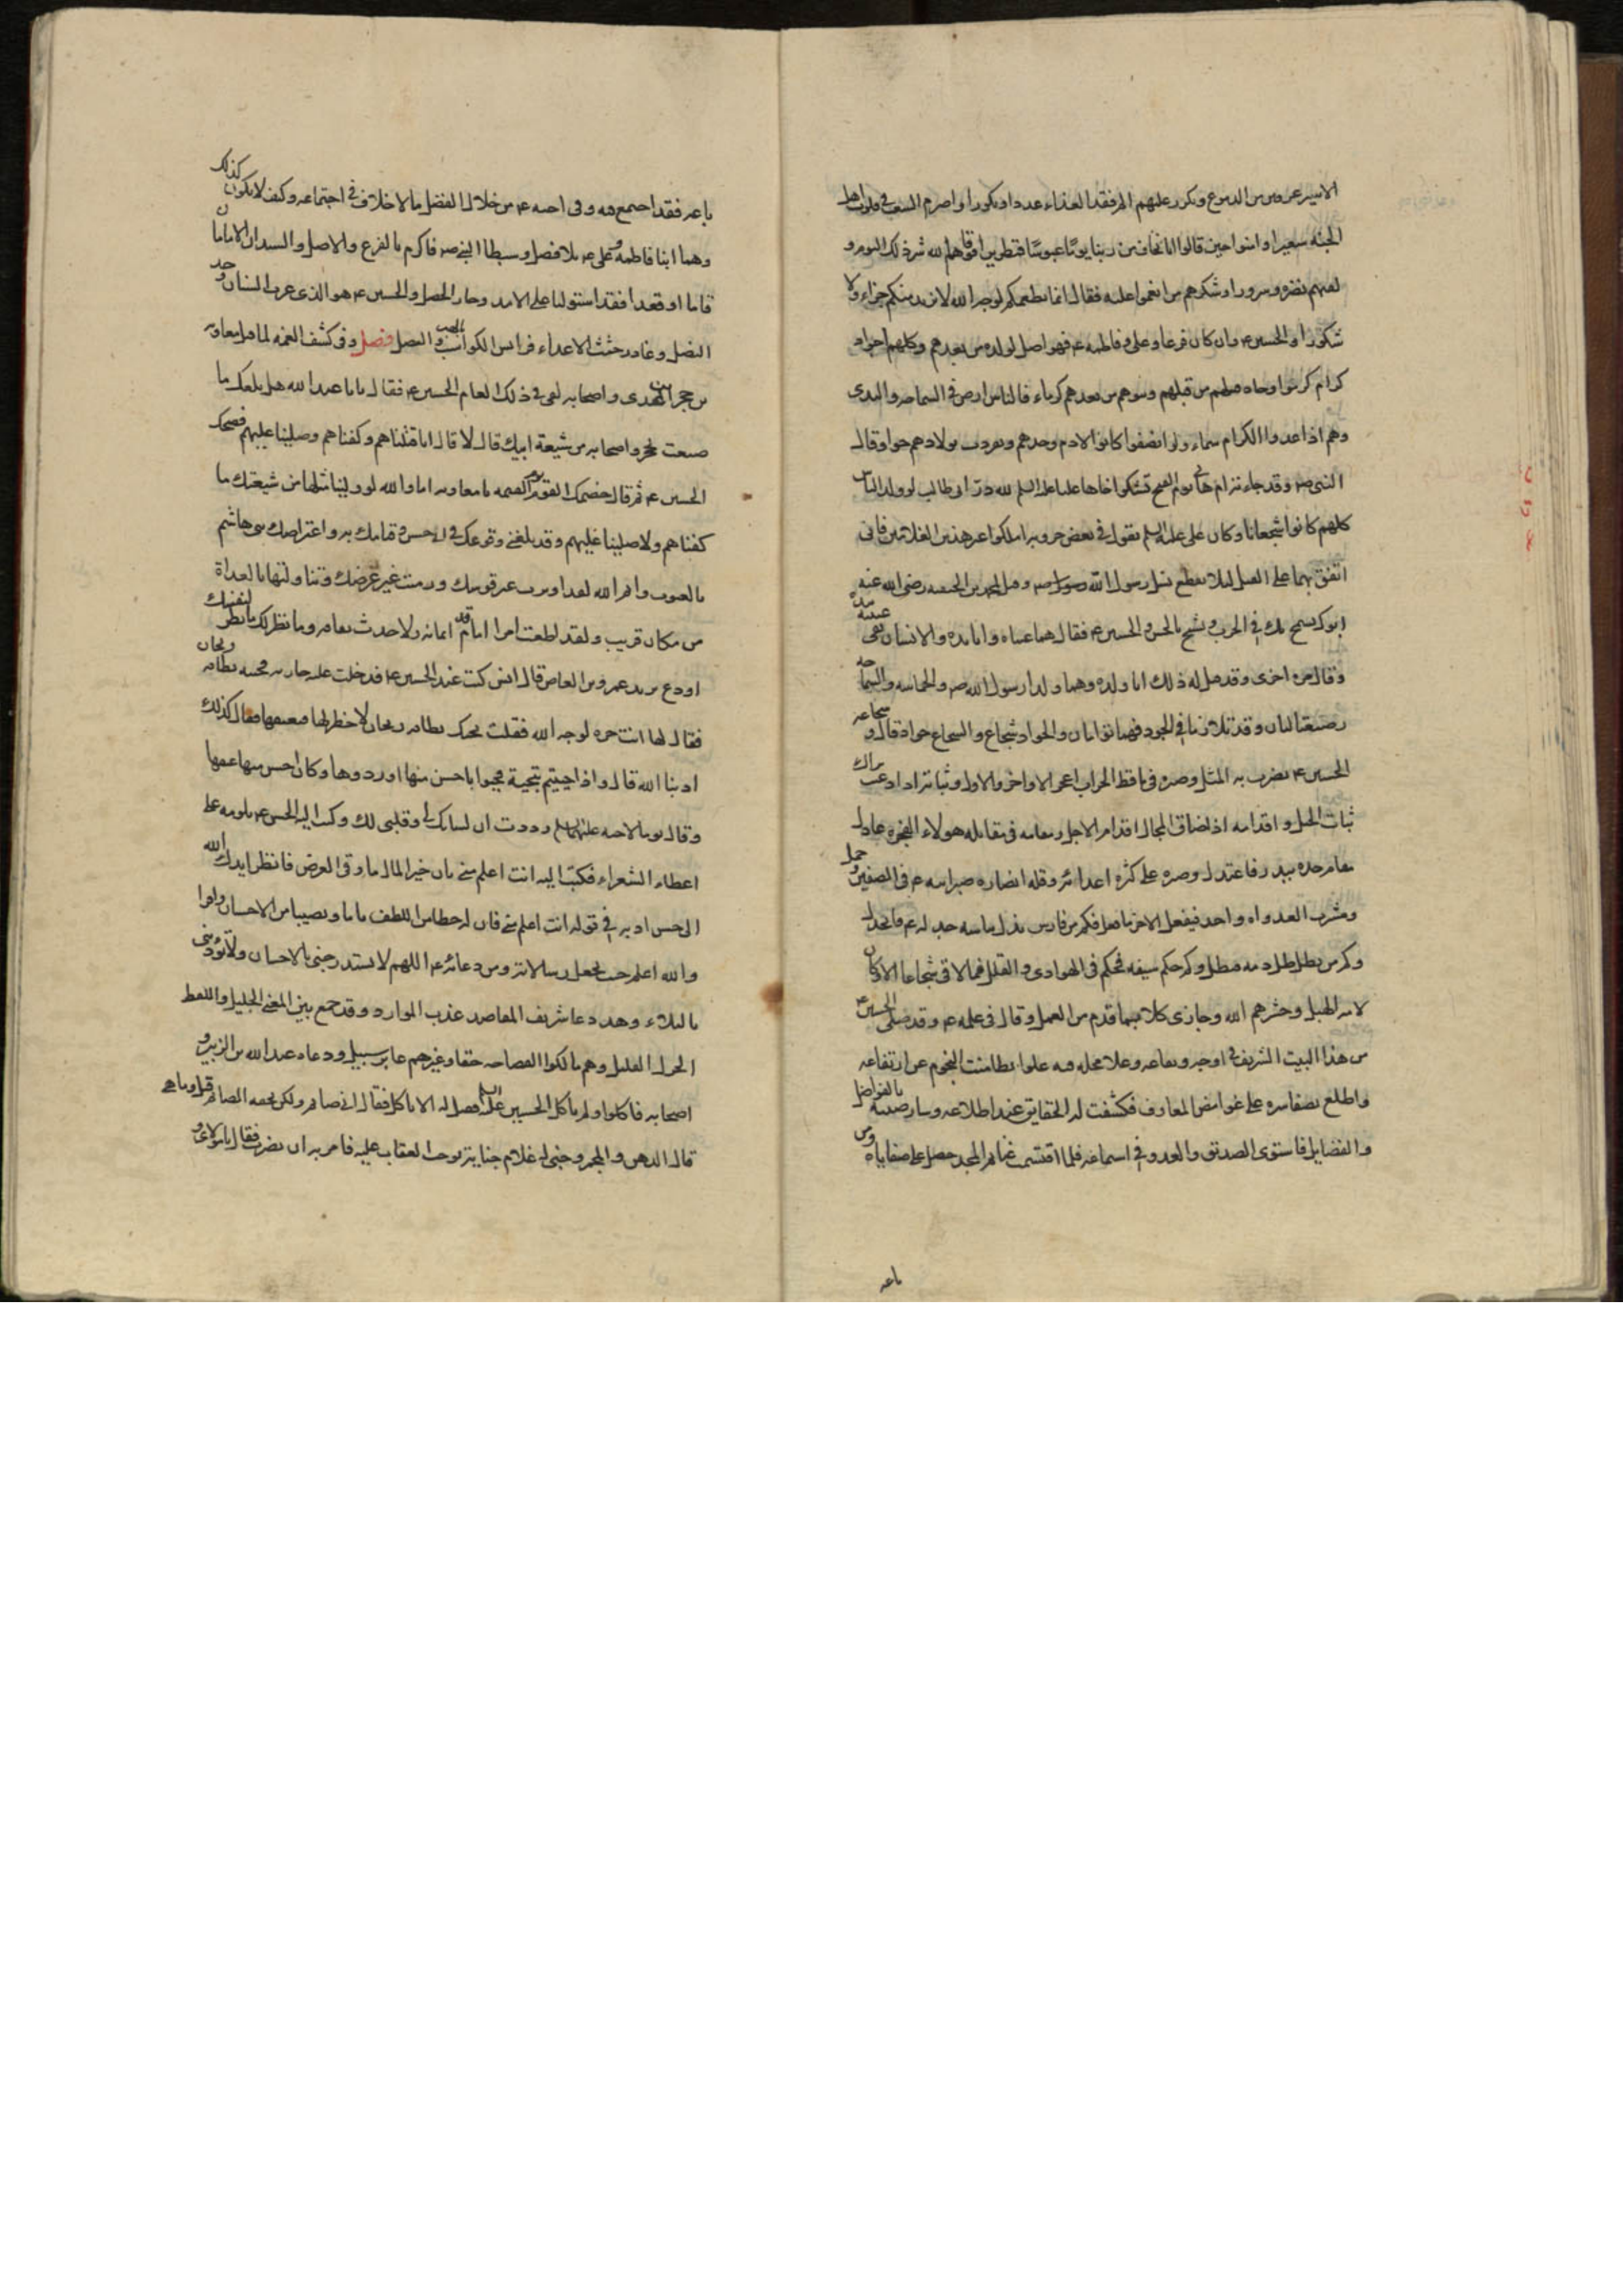 الاسير عروس من الدموع وتكرر عليهم الم فقد الغذاء عددا وبكورا واضرم السغب في قلوب اهل
الجنة سعيرا وامنوا حين قالوا انا نخاف من ربنا يوما عبوسا قمطريرا فوقاهم الله شر ذلك اليوم و
لقيهم نضرة وسرورا وشكرهم من انعموا عليه فقال انما نطعمكم لوجه الله لا نريد منكم جزاء ولا
شكورا والحسين ع وان كان فرعا وعلي وفاطمة ع فهو اصل لولده من بعدهم وكلهم اجواد
كرام كرموا وجاد قبلهم من قبلهم وبنوهم من بعدهم كرماء فالناس ارض في السماحة والندى
وهم اذا عدوا الكرام سماء ولو انصفوا كانوا لآدم وحدهم وتفردت بولادهم حوا وقال
النبي ص وقد جاءته ام هاني يوم الفتح تشكوا اخاها عليا عليه السلم لله در ابي طالب لو ولد الناس
كلهم كانوا شجعانا وكان علي عليه السلم يقول في بعض حروبه املكوا عني هذين الغلامين فاني
انفس بهما على القتل لئلا ينقطع نسل رسول الله ص وقيل لمحمد بن الحنفية رضي الله عنه
ابوك يسمح بك في الحرب ويشح بالحسن والحسين ع فقال هما عيناه وانا يده والانسان يقي عينيه بيده
وقال مرة اخرى وقد قيل له ذلك انا ولده وهما ولدا رسول الله ص والحماسة والسماحة
رضيعتا لبان وقد تلازما في الجود فهما توأمان والجواد شجاع والشجاع جواد قال وشجاعة
الحسين ع يضرب به المثل وصبره في مأقط الحراب اعجز الاواخر والاول وثباته اذا دعيت نزال
ثبات الجبل واقدامه اذا ضاق المجال اقدام الاجل ومقامه في مقابلة هولاء الفجرة عادل
مقام جده ببدر فاعتدل وصبره على كثرة اعدائه وقلة انصاره صبر ابيه ع في صفين والجمل
ومشرب العداوة واحد فبفعل الاخر ما فعل فكم من فارس مدل بباسه جدله ع فانجدل
وكم من بطل طل دمه فبطل وكم حكم سيفه فحكم في الهوادي والقلل فما لاقى شجاعا الا وكان
لامه الهبل وحشرهم الله وجازى كلا بما قدم من العمل وقال في علمه ع وقد حل الحسين ع
من هذا البيت الشريف في اوجه ويفاعه وعلا محله فيه علوا تطامنت النجوم عن ارتفاعه
واطلع بصفاء سره على غوامض المعارف فكشفت له الحقايق عند اطلاعه وسار صيته بالفواضل
والفضايل فاستوى الصديق والعدو في استماعه فلما اقتسمت غنايم المجد حصل على صفاياه ومر
باعه
باعه فقد اجتمع فيه وفي اخيه ع من خلال الفضل ما لا خلاف في اجتماعه وكيف لا يكون كذلك
وهما ابنا فاطمة وعلي ع بلا فصل وسبطا النبي ص فاكرم بالفرع والاصل والسيدان الامامان
قاما او قعدا فقد استوليا على الامد وحاز الخصل والحسين ع هو الذي غرب السنان وحد
النصل وغادر جثث الاعداء فرايس الكواسب والفصل فصل وفي كشف الغمه لما قتل معاويه
بن حجر الكندي واصحابه لقي في ذلك العام الحسين ع فقال يابا عبدالله هل بلغك ما
صنعت بحجر واصحابه من شيعة ابيك قال لا قال انا قتلناهم وكفناهم وصلينا عليهم فضحك
الحسين ع ثم قال خصمك القوم يوم القيمه يا معاويه اما والله لو ولينا مثلها من شيعتك ما
كفناهم ولا صلينا عليهم وقد بلغني وقوعك في ابي حسن وقيامك به واعتراضك بني هاشم
بالعيوب وايم الله لقد اوترت غير قوسك ورميت غير غرضك وتناولتها بالعداوة
من مكان قريب ولقد اطعت امرا ما قدم ايمانه ولا حدث نفاقه وما نظر لك فانظر لنفسك
او دع يريد عمرو بن العاص قال انس كنت عند الحسين ع فدخلت عليه جاريه فحيته بطاقة ريحان
فقال لها انت حرة لوجه الله فقلت تحيك بطاقه ريحان لا خطر لها فتعتقها فقال كذلك
ادبنا الله قال واذا حييتم بتحية فحيوا باحسن منها او ردوها وكان احسن منها عتقها
وقال يوما لاخيه عليهما السلم وددت ان لسانك لي وقلبي لك وكتب اليه الحسن ع يلومه على
اعطاء الشعراء فكتب اليه انت اعلم مني بان خير المال ما وقى العرض فانظر ايدك الله
الى حسن ادبه في قوله انت اعلم مني فان له حظا من اللطف تاما ونصيبا من الاحسان وافرا
والله اعلم حيث يجعل رسالاته ومن دعائه ع اللهم لا تستدرجني بالاحسان ولا تؤدبني
بالبلاء وهذا دعا شريف المقاصد عذب الموارد وقد جمع بين المعنى الجليل واللفظ
الجزل القليل وهم مالكوا الفصاحه حقا وغيرهم عابر سبيل ودعاه عبدالله بن الزبير و
اصحابه فاكلوا ولم يأكل الحسين عليه السلم فقيل له الا تاكل فقال اني صائم ولكن تحفه الصائم قيل وما هي
قال الدهن والمجمر وجنى له غلام جناية توجب العقاب عليه فامر به ان يضرب فقال يا مولاي و